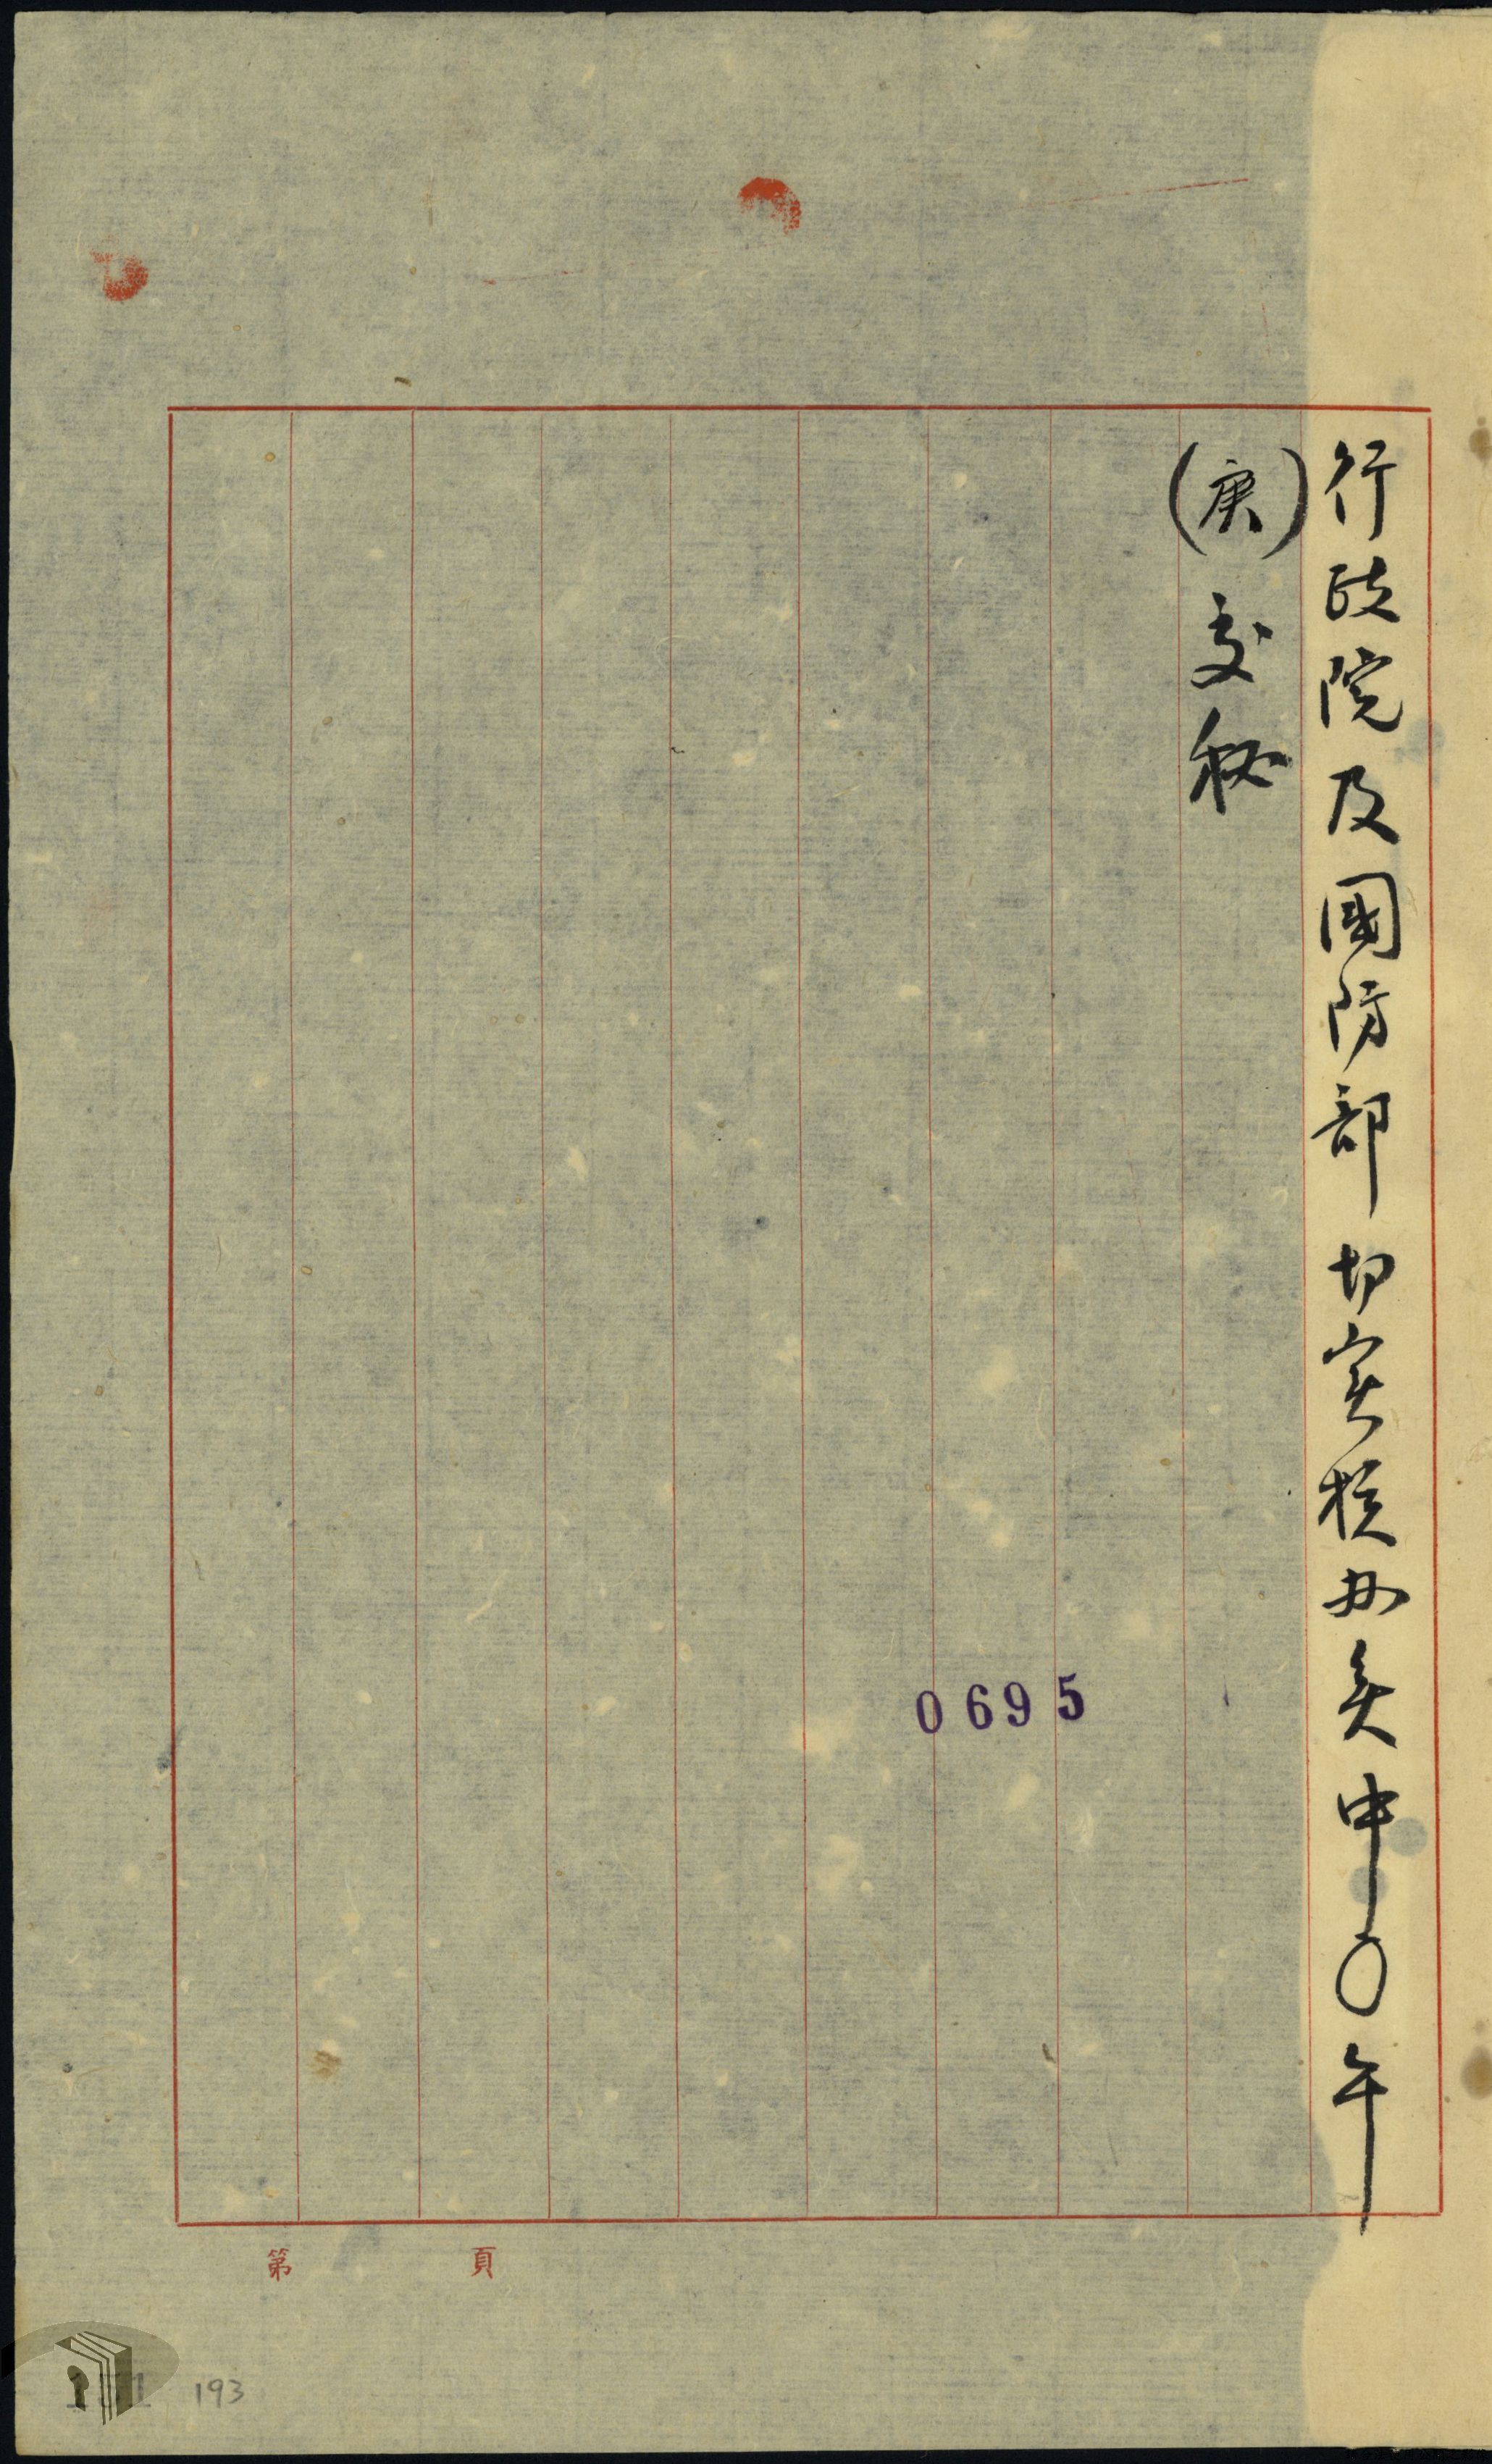 行政院及國防部切実核办矣中〇午
(庚)交秘
0695
第 頁
193